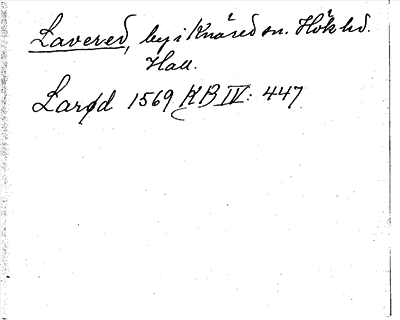 Lavered, by i Knäred sn. Höks hd.
Hall.
Larød 1569 KB IV: 447